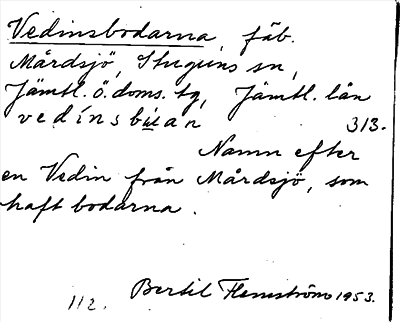 Vedinsbodarna, fäb.
Mårdsjö, Stuguns sn,
Jämtl. ö. doms. tg, Jämtl. län
vedínsbu̲an 313.
Namn efter
en Vedin från Mårdsjö, som
haft bodarna.
Bertil Flemström 1953.
112.